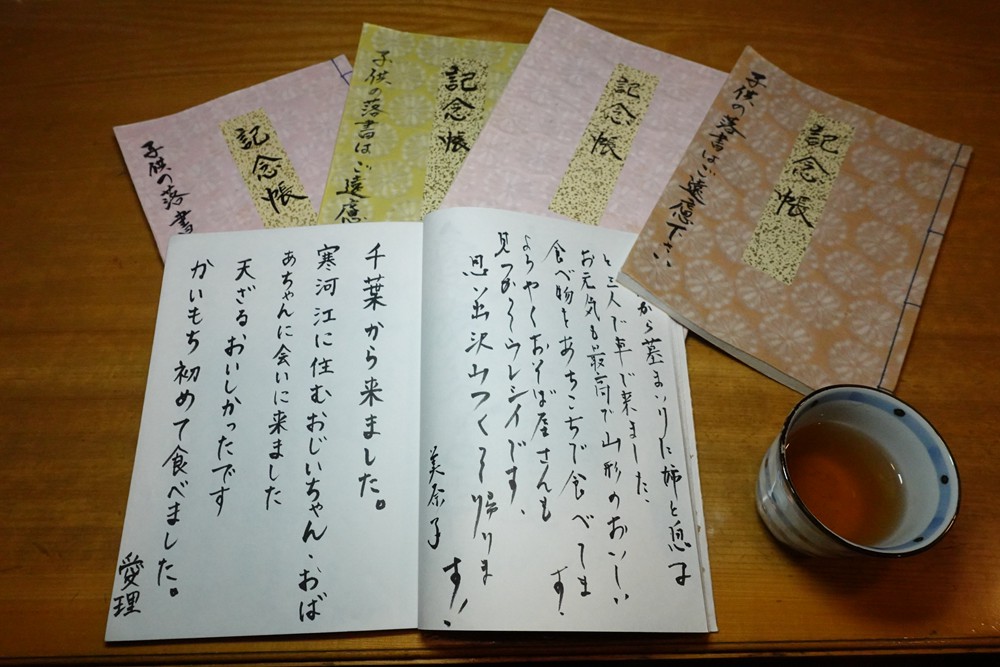 記念帳
子供の落書
記念帳
子供の落書はご遠慮
記念帳
記念帳
子供の落書はご遠慮下さい
から墓まいりに姉と息子
と三人で車で来ました、
お元気も最高で山形のおいしい
食べ物をあちこちで食べてま
す.
ようやくおそば屋さんも
見つかってウレシイです、
思い出沢山つくって帰りま
す!
美奈子
千葉から来ました。
寒河江に住むおじいちゃん、おば
あちゃんに会いに来ました
天ざる、おいしかったです
かいもち初めて食べました。
愛理